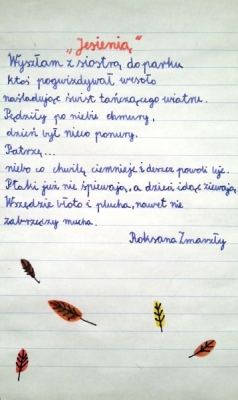 „Jesienią"
Wyszłam z siostrą do parku
ktoś pogwizdywał wesoło
naśladując świst tańczącego wiatru.
Pędziły po niebie chmury,
dzień był nieco ponury.
Patrzę...
niebo co chwilę ciemnieje i deszcz powoli leje.
Ptaki już nie śpiewają, a dzieci idąc ziewają,
Wszędzie błoto i plucha, nawet nie
zabrzęczy mucha.
Roksana Zmarzły